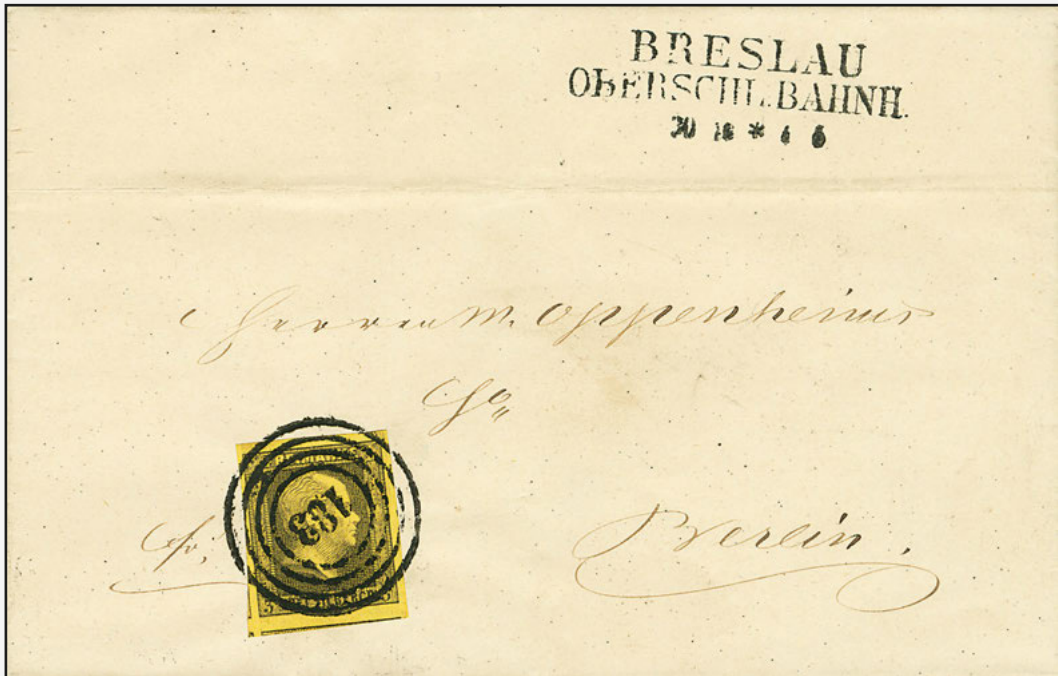 BRESLAU
OBERSCHL.BAHNH.
30 10 * 4 6
Herren M. Oppenheims
Co
183
fr.
Berlin.